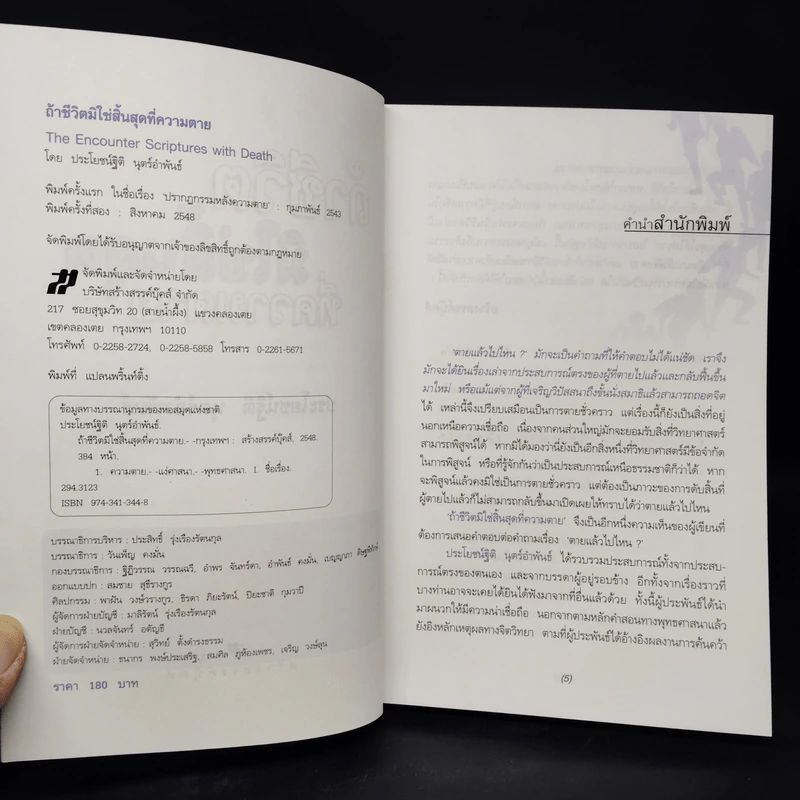 ถ้าชีวิตมิใช่สิ้นสุดที่ความตาย
The Encounter Scriptures with Death
โดย ประโยชน์ฐิติ นุตร์อำพันธ์
พิมพ์ครั้งแรก ในชื่อเรื่อง 'ปรากฏกรรมหลังความตาย' : กุมภาพันธ์ 2543
พิมพ์ครั้งที่สอง : สิงหาคม 2548
จัดพิมพ์โดยได้รับอนุญาตจากเจ้าของลิขสิทธิ์ถูกต้องตามกฎหมาย
จัดพิมพ์และจัดจำหน่ายโดย
บริษัทสร้างสรรค์บุ๊คส์ จำกัด
217 ซอยสุขุมวิท 20 (สายน้ำผึ้ง) แขวงคลองเตย
เขตคลองเตย กรุงเทพฯ 10110
โทรศัพท์ 0-2258-2724, 0-2258-5858 โทรสาร 0-2261-5671
พิมพ์ที่ แปลนพริ้นท์ติ้ง
ข้อมูลทางบรรณานุกรมของหอสมุดแห่งชาติ
ประโยชน์ฐิติ นุตร์อำพันธ์.
ถ้าชีวิตมิใช่สิ้นสุดที่ความตาย.- -กรุงเทพฯ : สร้างสรรค์บุ๊คส์, 2548.
384 หน้า.
1. ความตาย.- -แง่ศาสนา.- -พุทธศาสนา. I. ชื่อเรื่อง.
294.3123
ISBN 974-341-344-8
บรรณาธิการบริหาร : ประสิทธิ์ รุ่งเรืองรัตนกุล
บรรณาธิการ : วันเพ็ญ คงมั่น
กองบรรณาธิการ : ฐิฏิวรรณ วรรณฉวี, อำพร จันทร์ดา, อำพันธ์ คงมั่น, เบญญาภา
ออกแบบปก : สมชาย สุธีรางกูร
ศิลปกรรม : พาฝัน วงษ์วรางกูร, ธิรดา ภิยะรัตน์, ปิยะชาติ กุมวาปี
ผู้จัดการฝ่ายบัญชี : มาลีรัตน์ รุ่งเรืองรัตนกุล
ฝ่ายบัญชี : นวลจันทร์ อตัญฉี
ผู้จัดการฝ่ายจัดจำหน่าย : สุวิทย์ ตั้งดำรงธรรม
ฝ่ายจัดจำหน่าย : ธนากร พงษ์ประเสริฐ, สมศิล ภูห้องเพชร, เจริญ วงษ์ขุน
ราคา 180 บาท
คำนำสำนักพิมพ์
'ตายแล้วไปไหน ?' มักจะเป็นคำถามที่ให้คำตอบไม่ได้แน่ชัด เราจึง
มักจะได้ยินเรื่องเล่าจากประสบการณ์ตรงของผู้ที่ตายไปแล้วและกลับฟื้นขึ้น
มาใหม่ หรือแม้แต่จากผู้ที่เจริญวิปัสสนาถึงขั้นนั่งสมาธิแล้วสามารถถอดจิต
ได้ เหล่านี้จึงเปรียบเสมือนเป็นการตายชั่วคราว แต่เรื่องนี้ก็ยังเป็นสิ่งที่อยู่
นอกเหนือความเชื่อถือ เนื่องจากคนส่วนใหญ่มักจะยอมรับสิ่งที่วิทยาศาสตร์
สามารถพิสูจน์ได้ หากมิได้มองว่านี่ยังเป็นอีกสิ่งหนึ่งที่วิทยาศาสตร์มีข้อจำกัด
ในการพิสูจน์ หรือที่รู้จักกันว่าเป็นประสบการณ์เหนือธรรมชาติก็ว่าได้ หาก
จะพิสูจน์แล้วคงมิใช่เป็นการตายชั่วคราว แต่ต้องเป็นภาวะของการดับสิ้นที่
ผู้ตายไปแล้วก็ไม่สามารถกลับขึ้นมาเปิดเผยให้ทราบได้ว่าตายแล้วไปไหน
'ถ้าชีวิตมิใช่สิ้นสุดที่ความตาย' จึงเป็นอีกหนึ่งความเห็นของผู้เขียนที่
ต้องการเสนอคำตอบต่อคำถามเรื่อง 'ตายแล้วไปไหน ?'
ประโยชน์ฐิติ นุตร์อำพันธ์ ได้รวบรวมประสบการณ์ทั้งจากประสบ-
การณ์ตรงของตนเอง และจากบรรดาผู้อยู่รอบข้าง อีกทั้งจากเรื่องราวที่
บางท่านอาจจะเคยได้ยินได้ฟังมาจากที่อื่นแล้วด้วย ทั้งนี้ผู้ประพันธ์ได้นำ
มาผนวกให้มีความน่าเชื่อถือ นอกจากตามหลักคำสอนทางพุทธศาสนาแล้ว
ยังอิงหลักเหตุผลทางจิตวิทยา ตามที่ผู้ประพันธ์ได้อ้างอิงผลงานการค้นคว้า
(5)